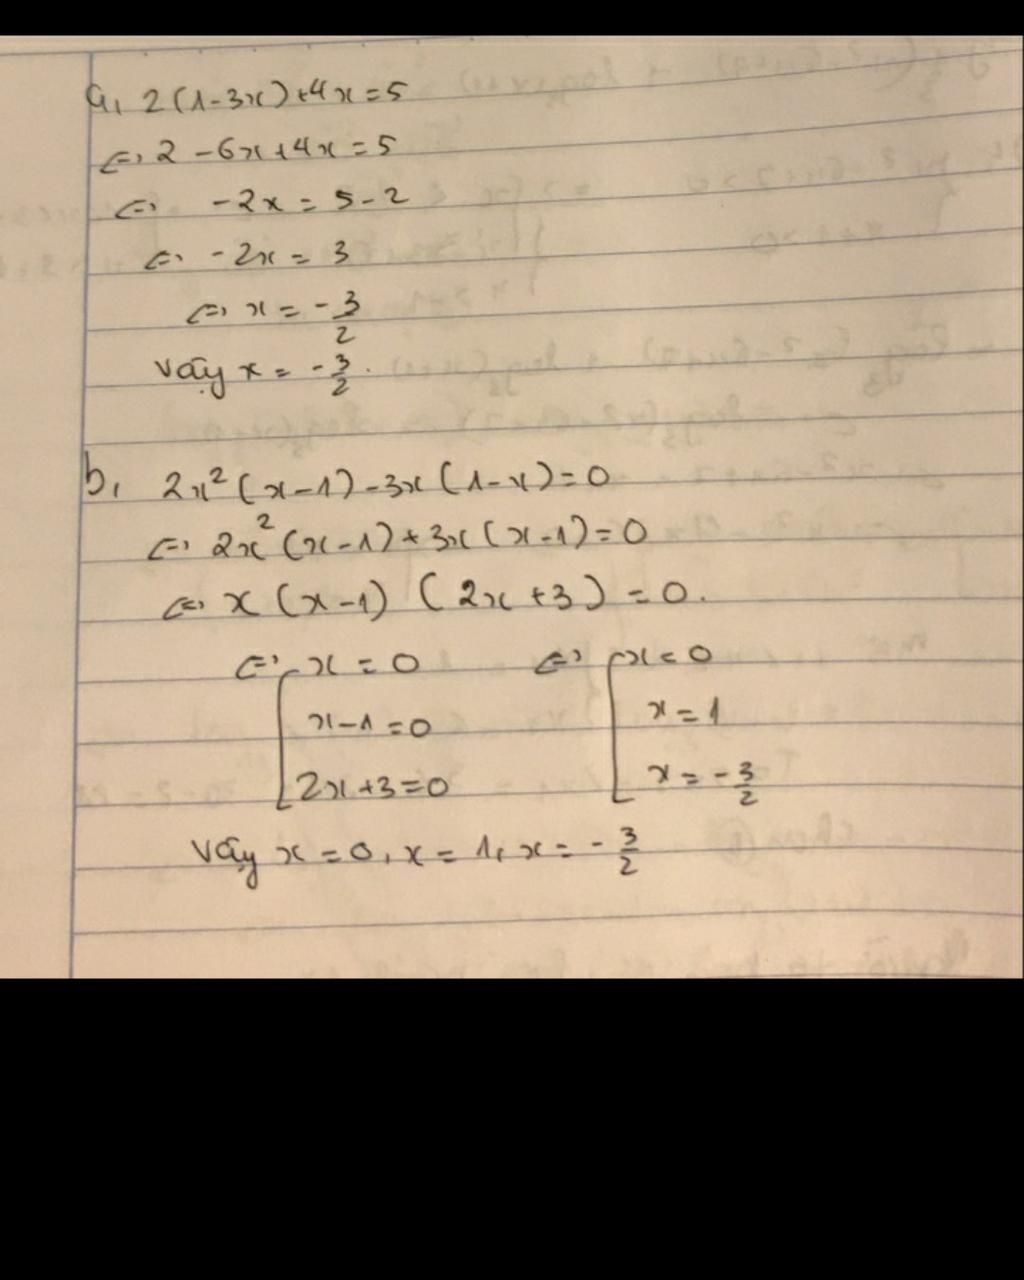 a, 2(1-3x)+4x=5
<=> 2 -6x+4x=5
<=> -2x = 5-2
<=> -2x = 3
<=> x = -3/2
Vậy x = -3/2.
b, 2x²(x-1)-3x(1-x)=0
<=> 2x²(x-1)+3x(x-1)=0
<=> x(x-1)(2x+3)=0.
<=> [x=0 <=> [x=0
x-1=0 x=1
2x+3=0 x=-3/2
Vậy x=0, x=1, x=-3/2